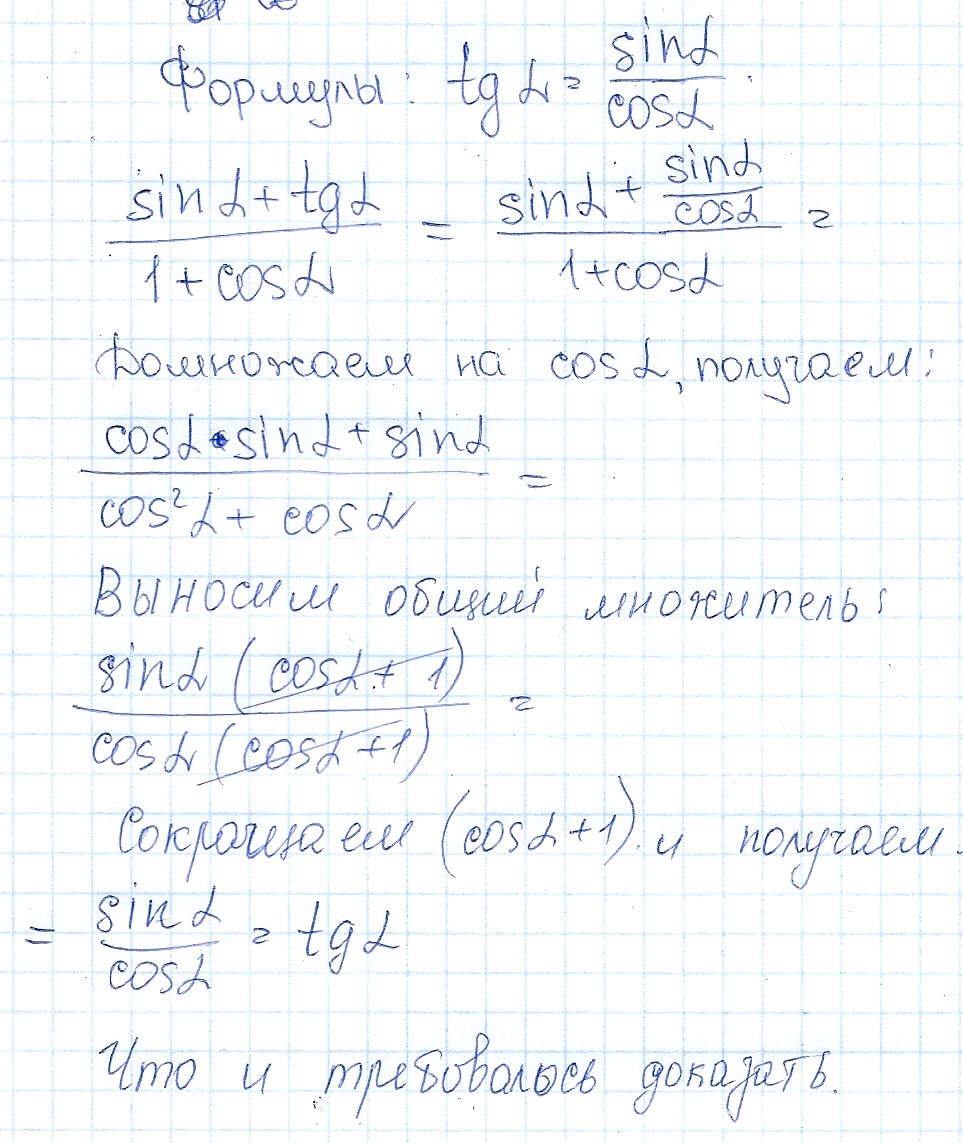 Формулы: tg α = sin α / cos α.
(sin α + tg α) / (1 + cos α) = (sin α + sin α / cos α) / (1 + cos α) =
Домножаем на cos α, получаем:
(cos α • sin α + sin α) / (cos² α + cos α) =
Выносим общий множитель:
sin α (cos α + 1) / cos α (cos α + 1) =
Сокращаем (cos α + 1) и получаем.
= sin α / cos α = tg α
Что и требовалось доказать.